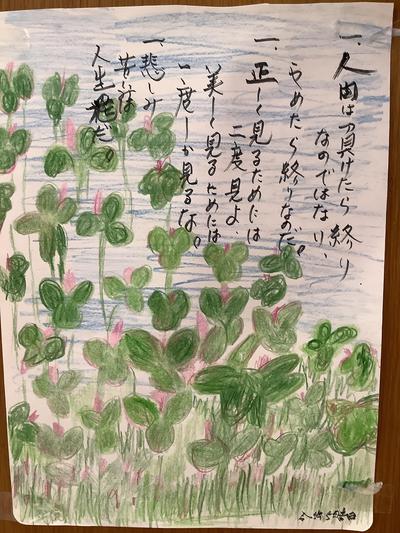 一、人間は負けたら終り
なのではない、
やめたら終りなのだ。
一、正しく見るためには
二度見よ、
美しく見るためには
一度しか見るな。
一、悲しみ
苦しみは
人生の花だ。